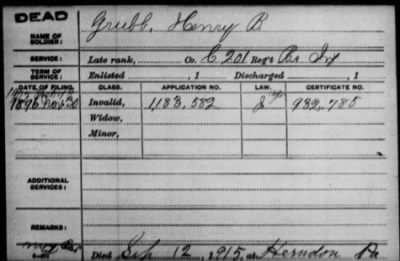 DEAD
NAME OF SOLDIER: Grubb, Henry B
SERVICE: Late rank, Co. C. 201 Reg't Pa Inf
TERM OF SERVICE: Enlisted , 1 Discharged , 1
DATE OF FILING. CLASS. APPLICATION NO. LAW. CERTIFICATE NO.
1896 Nov 20 Invalid, 1183,582 932,785
Widow,
Minor,
ADDITIONAL SERVICES:
REMARKS:
Died Sep 12, 1915, at Herndon Pa